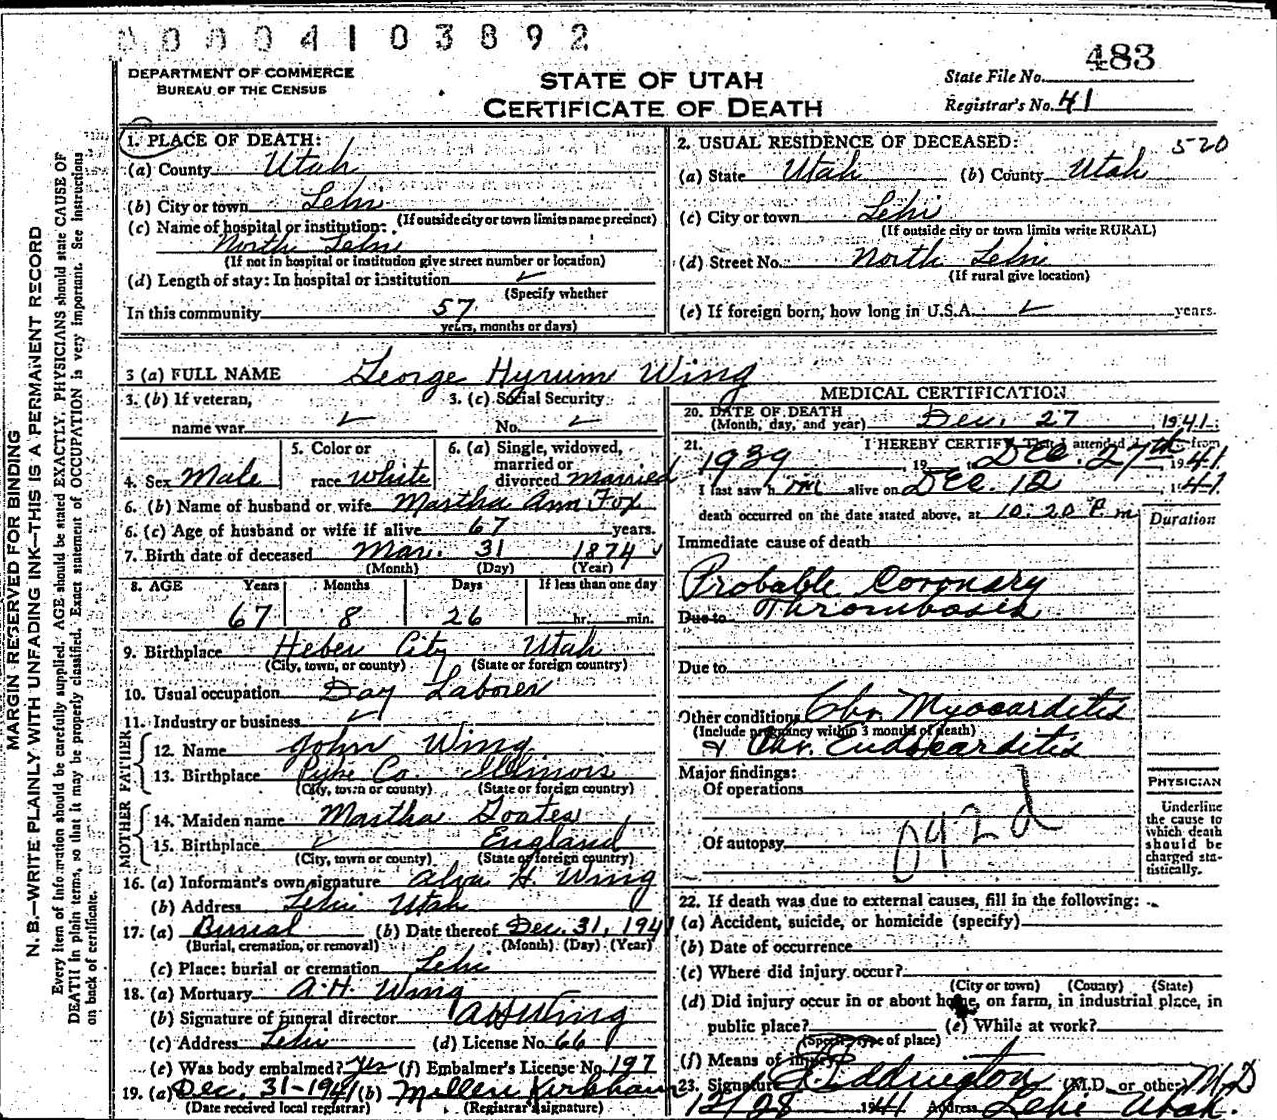 0 0 0 0 4 1 0 3 8 9 2
483
DEPARTMENT OF COMMERCE
BUREAU OF THE CENSUS
STATE OF UTAH
CERTIFICATE OF DEATH
State File No.
Registrar's No. 41
MARGIN RESERVED FOR BINDING
N. B.—WRITE PLAINLY WITH UNFADING INK—THIS IS A PERMANENT RECORD
Every item of information should be carefully supplied. AGE should be stated EXACTLY. PHYSICIANS should state CAUSE OF
DEATH in plain terms, so that it may be properly classified. Exact statement of OCCUPATION is very important. See instructions
on back of certificate.
1. PLACE OF DEATH:
(a) County Utah
(b) City or town Lehi
(If outside city or town limits name precinct)
(c) Name of hospital or institution:
North Lehi
(If not in hospital or institution give street number or location)
(d) Length of stay: In hospital or institution ✓
(Specify whether
In this community 57
years, months or days)
2. USUAL RESIDENCE OF DECEASED: 520
(a) State Utah (b) County Utah
(c) City or town Lehi
(If outside city or town limits write RURAL)
(d) Street No. North Lehi
(If rural give location)
(e) If foreign born, how long in U.S.A. ✓ years.
3 (a) FULL NAME George Hyrum Wing
3. (b) If veteran, 3. (c) Social Security
name war ✓ No. ✓
4. Sex Male
5. Color or
race White
6. (a) Single, widowed,
married or
divorced married
6. (b) Name of husband or wife Martha Ann Fox
6. (c) Age of husband or wife if alive 67 years.
7. Birth date of deceased Mar. 31 1874 ✓
(Month) (Day) (Year)
8. AGE Years Months Days If less than one day
67 8 26 hr. min.
9. Birthplace Heber City Utah
(City, town, or county) (State or foreign country)
10. Usual occupation Day Laborer
11. Industry or business ✓
FATHER
12. Name John Wing
13. Birthplace Pyke Co. Illinois
(City, town or county) (State or foreign country)
MOTHER
14. Maiden name Martha Goates
15. Birthplace ✓ England
(City, town or county) (State or foreign country)
16. (a) Informant's own signature Alva H. Wing
(b) Address Lehi Utah
17. (a) Burial (b) Date thereof Dec. 31, 1941
(Burial, cremation, or removal) (Month) (Day) (Year)
(c) Place: burial or cremation Lehi
18. (a) Mortuary A. H. Wing
(b) Signature of funeral director A H Wing
(c) Address Lehi (d) License No. 66
(e) Was body embalmed? Yes (f) Embalmer's License No. 197
19. (a) Dec. 31-1941 (b) Kirkham
(Date received local registrar) (Registrar's signature)
MEDICAL CERTIFICATION
20. DATE OF DEATH
(Month, day, and year) Dec. 27 1941
21. I HEREBY CERTIFY, That I attended from
1939, 19 to Dec. 27th 1941
I last saw him alive on Dec. 12 1941
death occurred on the date stated above, at 10:20 P. m
Duration
Immediate cause of death
Probable Coronary
Due to Thrombosis
Due to
Other conditions Chr. Myocarditis
(Include pregnancy within 3 months of death)
& Chr. Endocarditis
Major findings:
Of operations
Of autopsy
092d
PHYSICIAN
Underline
the cause to
which death
should be
charged sta-
tistically.
22. If death was due to external causes, fill in the following:
(a) Accident, suicide, or homicide (specify)
(b) Date of occurrence
(c) Where did injury occur?
(City or town) (County) (State)
(d) Did injury occur in or about home, on farm, in industrial place, in
public place? (e) While at work?
(Specify type of place)
(f) Means of injury
23. Signature Eddington (M.D. or other) M D
12/28 1941 Address Lehi Utah